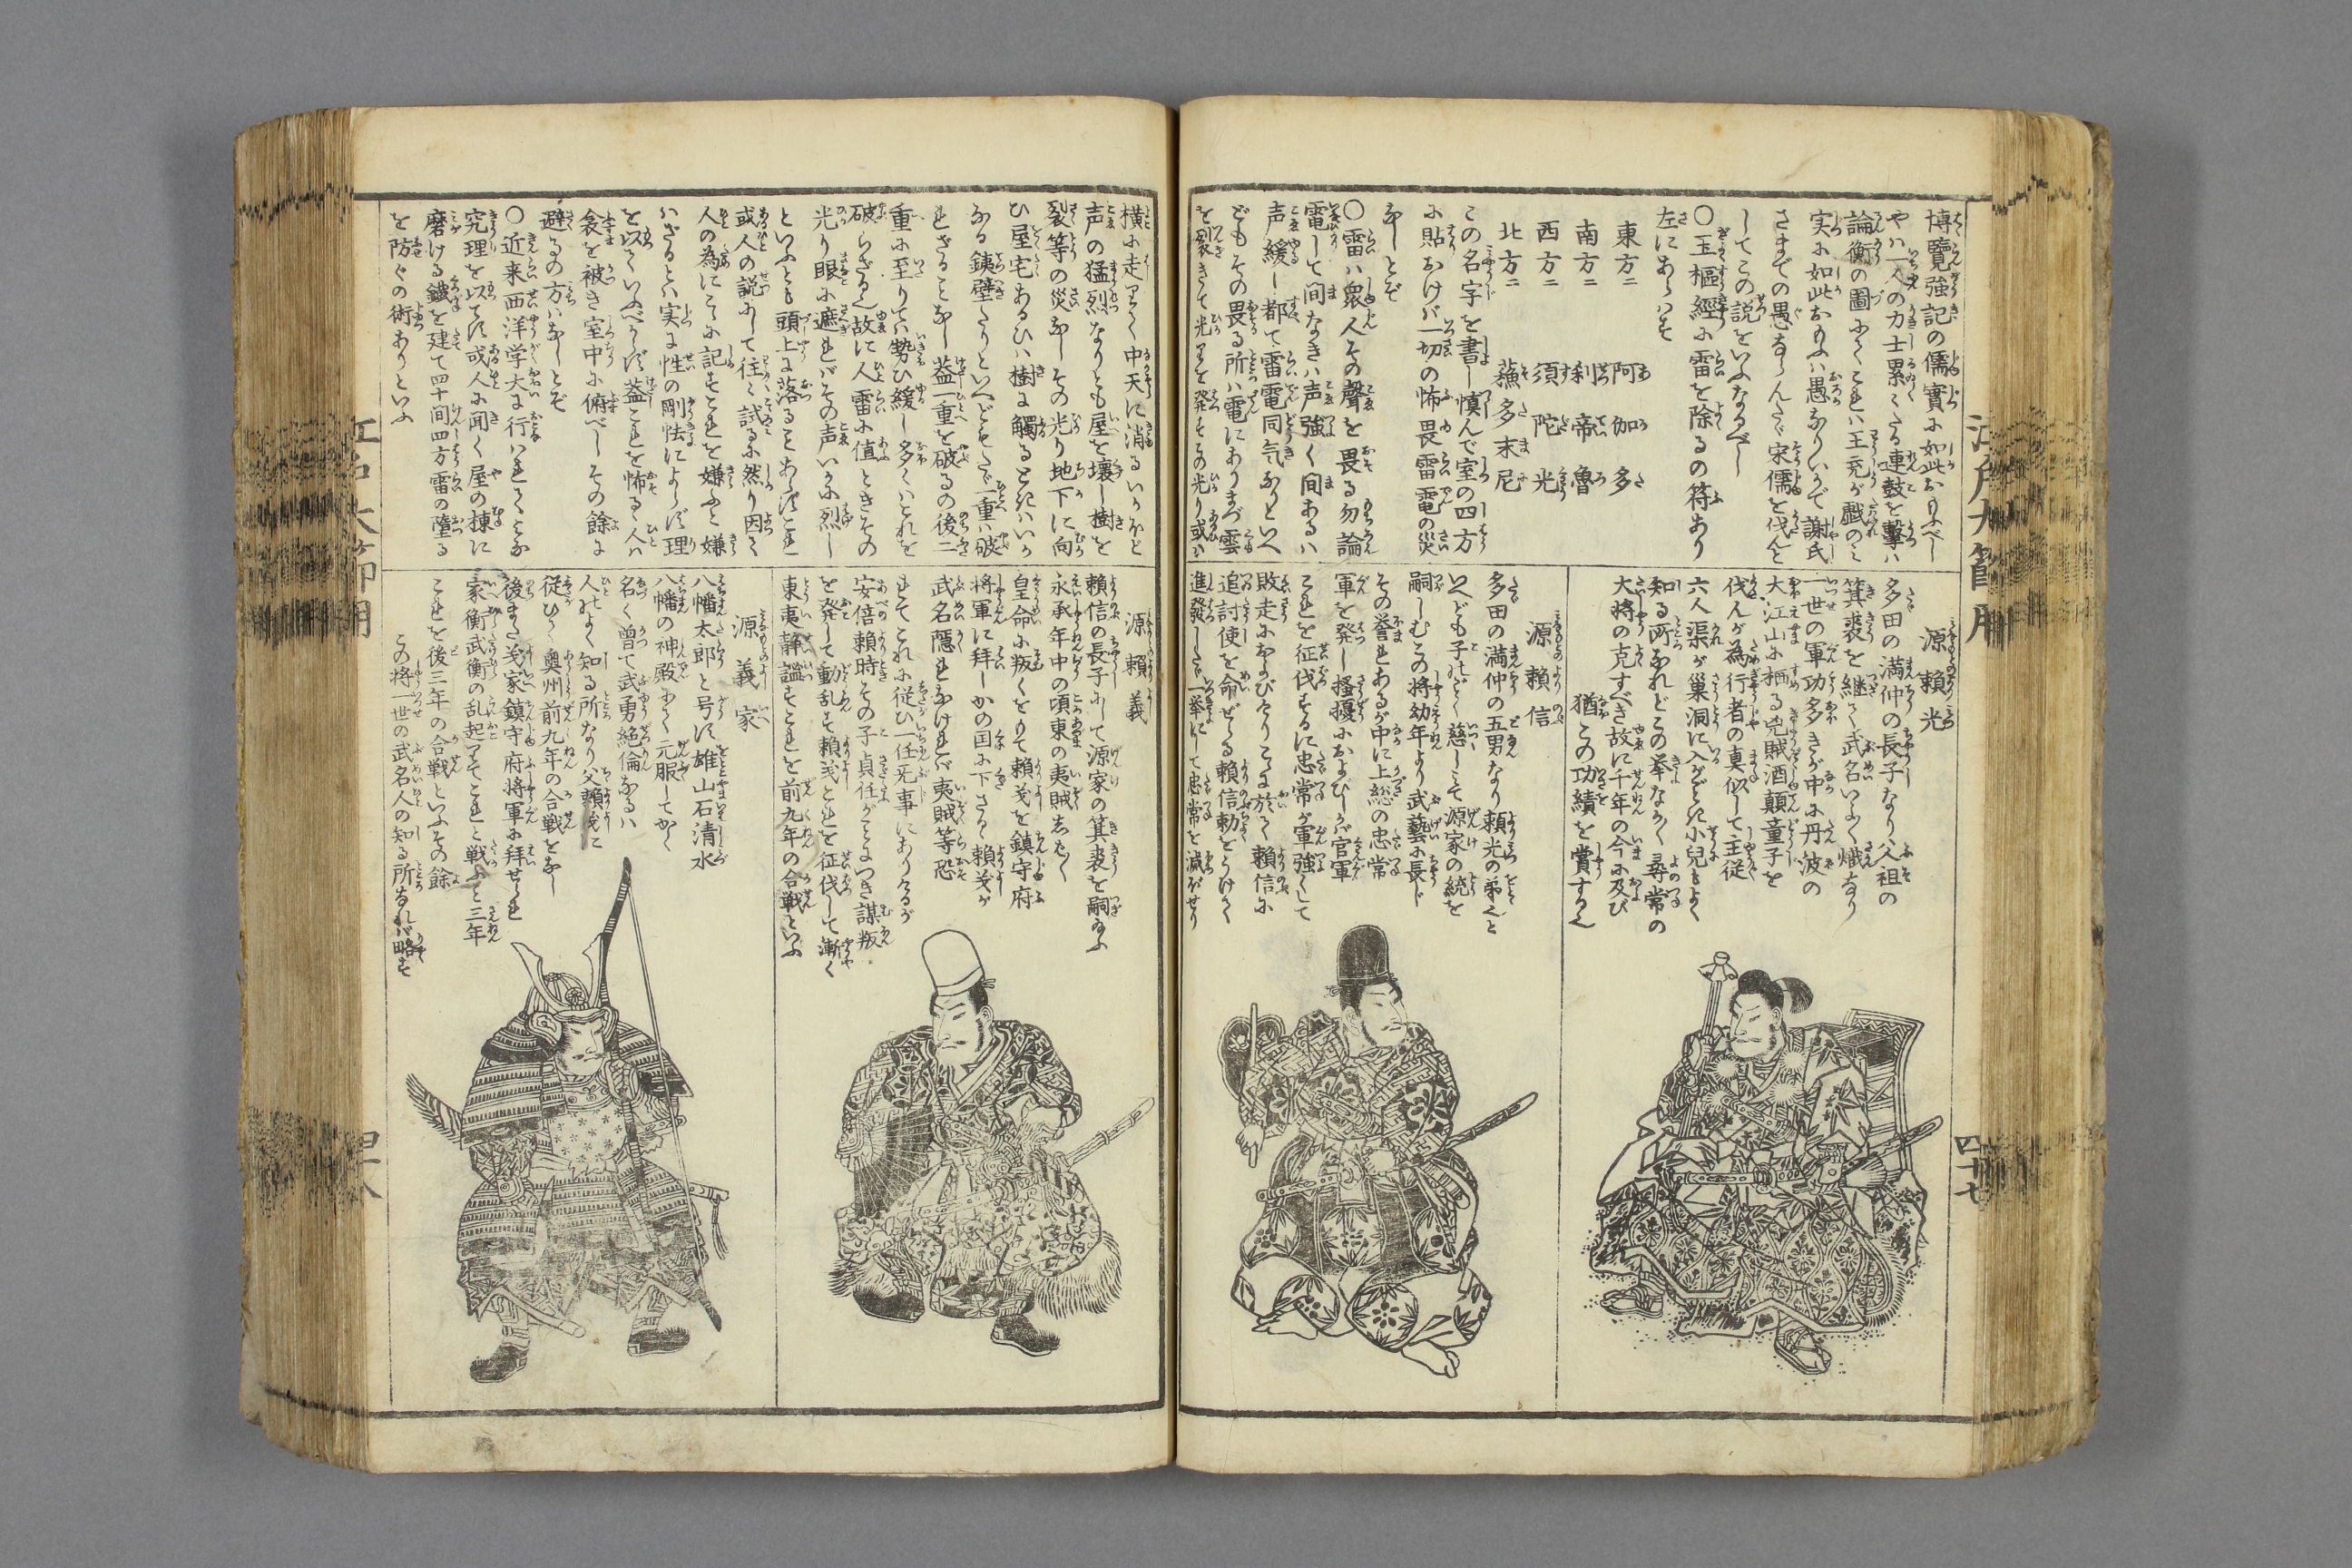 博覽強記の儒實に如此おもふべし
やハ一人の力士累々たる連鼓を擊ハ
論衡の圖にてこれハ王充が戯のミ
実に如此おもふハ愚なりいかで謝氏
さまでの愚ならんただ宋儒を伐んと
してこの説をいふなるべし
〇玉樞經に雷を除るの符あり
左にあらハす
東方ニ 阿伽多
南方ニ 刹帝魯
西方ニ 須陀光
北方ニ 蘓多末尼
この名字を書し慎んで室の四方
に貼おけバ一切の怖畏雷電の災
なしとぞ
〇雷ハ衆人その聲を畏る勿論
電して間なきハ声強く間あるハ
声緩し都て雷電同気なりといへ
どもその畏る所ハ電にありまづ雲
を裂きて光りを発すその光り或ハ
源頼光
多田の満仲の長子なり父祖の
箕裘を継て武名いよく熾なり
一世の軍功多きが中に丹波の
大江山に栖る兇賊酒顛童子を
伐んが為行者の真似して主従
六人渠が巣洞に入がごとき小兒もよく
知る所なれどこの挙なかく尋常の
大将の克すべき故に千年の今に及び
猶この功績を賞するへ
源頼信
多田の満仲の五男なり頼光の弟と
いへども子のごとく慈しミて源家の統を
嗣しむこの将幼年より武藝に長じ
その誉れあるが中に上総の忠常
軍を発し搔擾におよびしが官軍
これを征伐するに忠常が軍強くして
敗走におよびたりこゝに於て頼信に
追討使を命ぜらる頼信勅をうけて
進發したゞ一挙にして忠常を滅ぼせり
横に走りて中天に消るいかほど
声の猛烈なりとも屋を壊し樹を
裂等の災なしその光り地下に向
ひ屋宅あるひハ樹に觸るときハいか
なる銕壁たりといへどもたゞ一重ハ破
れざることなし葢一重を破るの後二
重に至りてハ勢ひ緩し多くハこれを
破らざる也故に人雷に値ときその
光り眼に遮れバその声いかに烈し
といふとも頭上に落ることあらずこれ
或人の説にして往々試るに然り因て
人の為にこゝに記すこれを嫌ふと嫌
ハざるとハ実に性の剛怯によらず理
を以ていふべからず葢これを怖るゝ人ハ
衾を被き室中に俯べしその餘に
避るの方ハなしとぞ
〇近来西洋学大に行ハれてくとな
究理を以てす或人に聞く屋の棟に
磨ける鐵を建て四十間四方雷の墮る
を防ぐの術ありといふ
源頼義
頼信の長子にして源家の箕裘を嗣給ふ
永承年中の頃東の夷賊あらく
皇命に叛くをもて頼義を鎮守府
将軍に拜しかの国に下さる頼義が
武名隱れなけれバ夷賊等恐
れてこれに従ひ一任无事にありけるが
安倍頼時その子貞任がことにつき謀叛
を発して動乱す頼義これを征伐して漸く
東夷静謐すこれを前九年の合戦といふ
源義家
八幡太郎と号す雄山石清水
八幡の神殿にて元服してかく
名く曾て武勇絶倫なるハ
人のよく知る所なり父頼義に
従ひて奥州前九年の合戦をなし
後また義家鎮守府将軍に拜せられ
家衡武衡の乱起りてこれと戦ふこと三年
これを後三年の合戦といふその餘
この将一世の武名人の知る所なれバ略す
江戸大節用
四十七